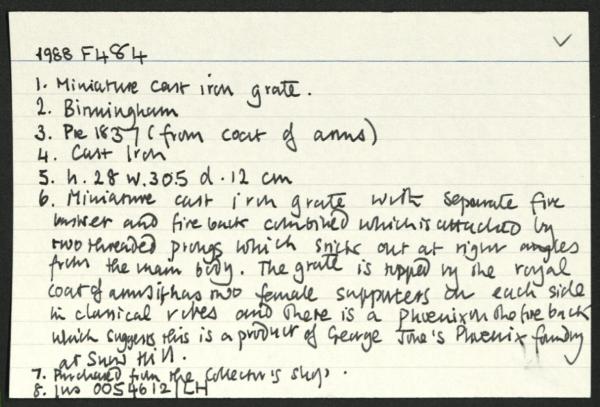 1988 F484
1. Miniature cast iron grate.
2. Birmingham
3. Pre 1837 (from coat of arms)
4. Cast Iron
5. h. 28 w. 30.5 d. 12 cm
6. Miniature cast iron grate with separate fire
basket and fireback combined which is attached by
two threaded prongs which sticks out at right angles
from the main body. The grate is topped by the royal
coat of arms it has two female supporters on each side
in classical robes and there is a phoenix on the fireback
which suggests this is a product of George Jone's Phoenix foundry
at Snow Hill.
7. Purchased from the Collector's shop.
8. Inv 0054612/LH